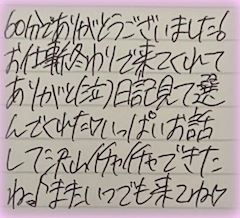 60分でありがとうございました!
お仕事終わりで来てくれて
ありがと(泣)日記見て選
んでくれた♡いっぱいお話
して沢山イチャイチャできた
ね♪またいつでも来てね♡